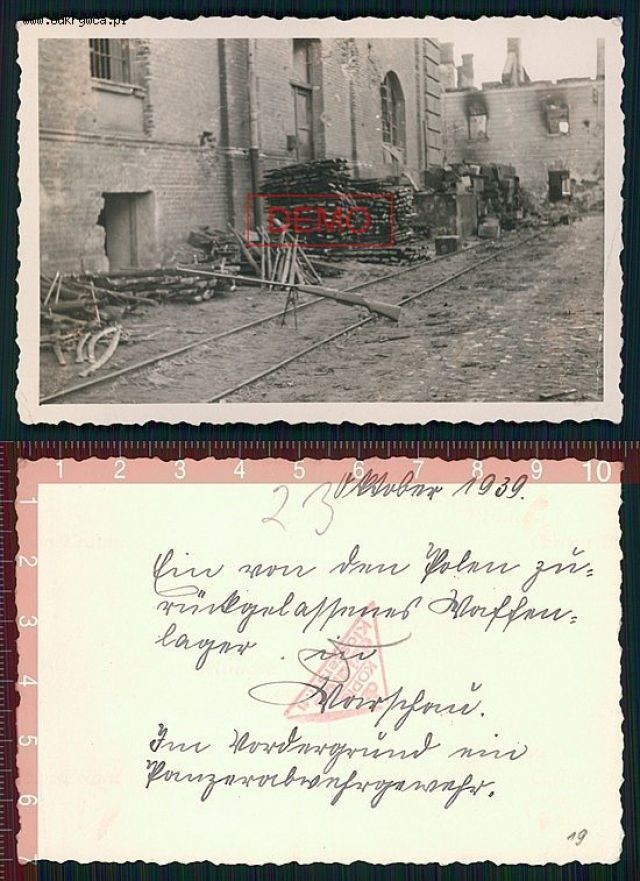 www.odkrywca.pl
DEMO
1 2 3 4 5 6 7 8 9 10
2
3
4
5
6
7
23 Oktober 1939.
Ein von den Polen zu=
rückgelassenes Waffen=
lager. in
Warschau.
Im Vordergrund ein
Panzerabwehrgewehr.
19